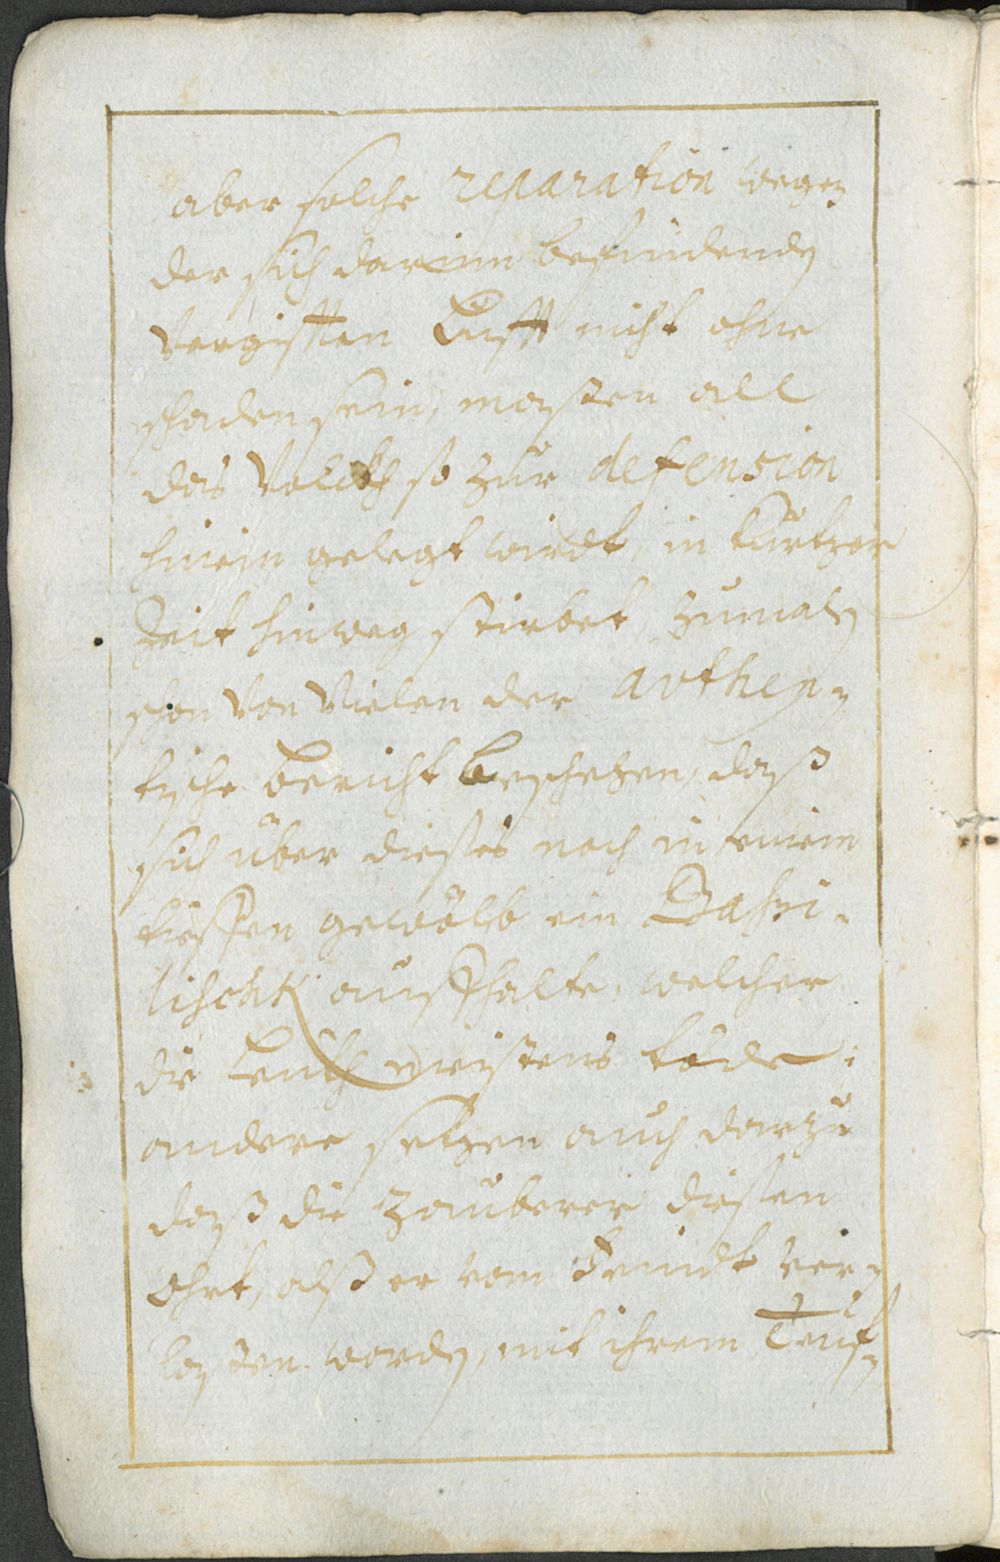 aber solche reparation wegen
der sich darinn befindenden
Vergifften Lufft nicht ohne
schaden sein, massen all
das Volckh so zur defension
hinein gelegt wirdt, in kurtzer
Zeit hinweg stirbet, zumalen
schon von Vielen der avthen-
tische bericht beschehen, daß
sich über dieses noch in einem
tieffen gewölb ein Basi-
lischk auffhalte, welcher
die Leuth meistens töde:
andere setzen auch darzu
daß die Zauberer diesen
Ohrt, alß er vom Feindt ver-
lassen worden, mit ihrem Teuf-